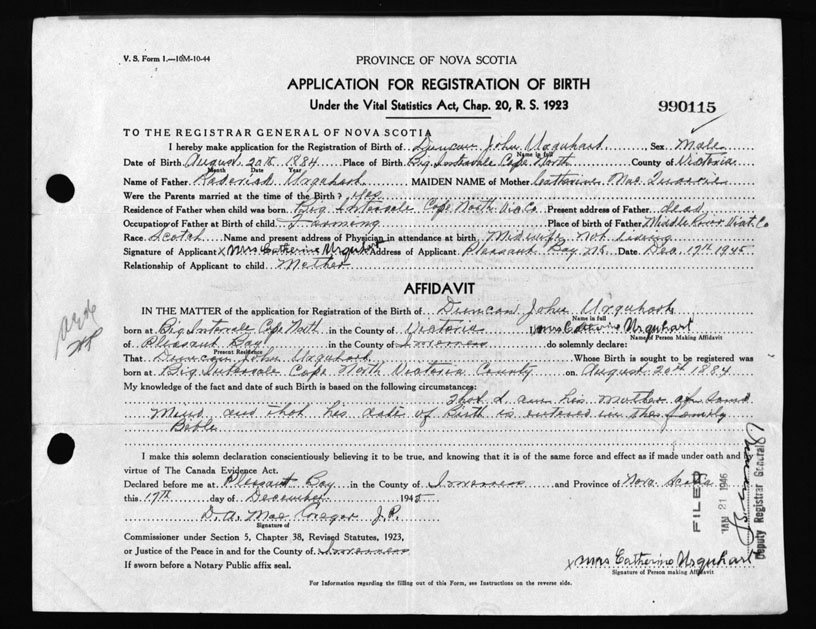 V. S. Form 1.—10M-10-44
PROVINCE OF NOVA SCOTIA
APPLICATION FOR REGISTRATION OF BIRTH
Under the Vital Statistics Act, Chap. 20, R. S. 1923
990115
TO THE REGISTRAR GENERAL OF NOVA SCOTIA
I hereby make application for the Registration of Birth of Duncan John Urquhart Sex Male
Name in full
Date of Birth August 20th 1884 Place of Birth Big Intervale Cape North County of Victoria
Month Date Year
Name of Father Roderick Urquhart MAIDEN NAME of Mother Catherine Mac
Were the Parents married at the time of the Birth? Yes
Residence of Father when child was born Big Intervale Cape North Vic Co Present address of Father dead
Occupation of Father at Birth of child Farming Place of birth of Father Middle River Vict. Co
Race Scotch Name and present address of Physician in attendance at birth Midwife Not Living
Signature of Applicant x Mrs Catherine Urquhart Address of Applicant Pleasant Bay N.S. Date Dec. 17th 1945
Relationship of Applicant to child Mother
AFFIDAVIT
IN THE MATTER of the application for Registration of the Birth of Duncan John Urquhart
Name in full
born at Big Intervale Cape North in the County of Victoria I, Mrs Catherine Urquhart
Name of Person Making Affidavit
of Pleasant Bay in the County of Inverness do solemnly declare:
Present Residence
That Duncan John Urquhart Whose Birth is sought to be registered was
born at Big Intervale Cape North Victoria County on August 20th 1884
My knowledge of the fact and date of such Birth is based on the following circumstances:
That I am his Mother of Sound
Mind and that his date of Birth is entered in the family
Bible
I make this solemn declaration conscientiously believing it to be true, and knowing that it is of the same force and effect as if made under oath and by
virtue of The Canada Evidence Act.
Declared before me at Pleasant Bay in the County of Inverness and Province of Nova Scotia
this 17th day of December 1945
D. A. Mac Gregor J.P.
Signature of
Commissioner under Section 5, Chapter 38, Revised Statutes, 1923,
or Justice of the Peace in and for the County of Inverness
If sworn before a Notary Public affix seal.
x Mrs Catherine Urquhart
Signature of Person making Affidavit
FILED
JAN 21 1946
Deputy Registrar General
For Information regarding the filling out of this Form, see Instructions on the reverse side.